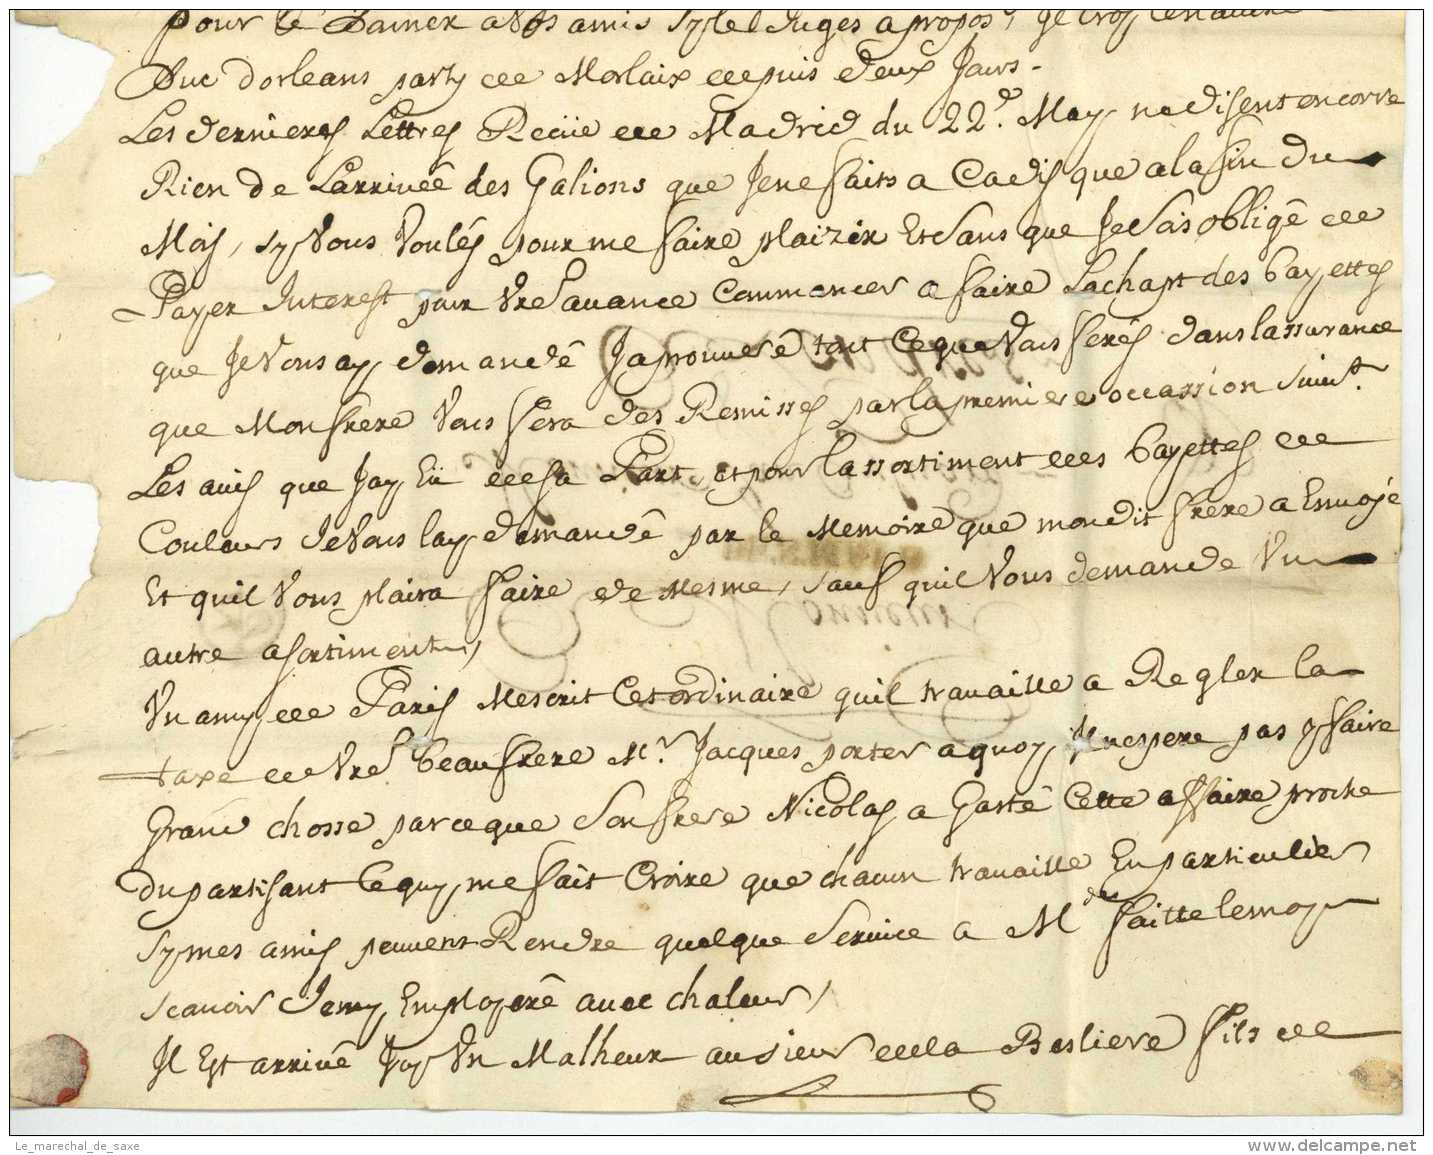 pour le Donner a Vos amis sy le Juges apropos, Je croy le navire
Duc dorleans party de Morlaix depuis deux Jours -
Les dernieres Lettres Reciie de Madrid du 22e. May, ne disent encorre
Rien de Larrivée des Galions que Je ne faits a Cadis que a la fin du
Mois, sy Vous Voulés pour me faire plaizir Et Sans que Je Sois obligê de
Payer Interest pour Vre avance Commencer a faire Lachapt des bayettes
que Je Vous ay demandê Japrouverê tout Ce que Vous ferés dans lassurance
que Mon frere Vous fera des Remisses par la premiere occassion Suivt.
Les avis que Jay Eü de sa Part, et pour lassortiment des bayettes de
Couleurs Je Vous lay demandê par le Memoire que mondit frere a Envoyé
Et quil Vous plaira faire de Mesme, sauf quil Vous demande Un
autre asortiment,
Un amy de Paris Mescrit Cet ordinaire quil travaille a Regler la
taxe de Vre beaufrere Mr. Jacques porter a quoy Jnespere pas y faire
Grand chosse parceque Son frere Nicolas a Gastê Cette affaire proche
du partisant Ce quy me fait Croire que chacun travaille En particulier
Sy mes amis peuvent Rendre quelque Service a Mde faitte le moy
scavoir Jemy Employerê avec chaleur,
Il Est arrivê Icy Un Malheur au sieur de la Besliere fils de
Le_marechal_de_saxe
www.delcampe.net